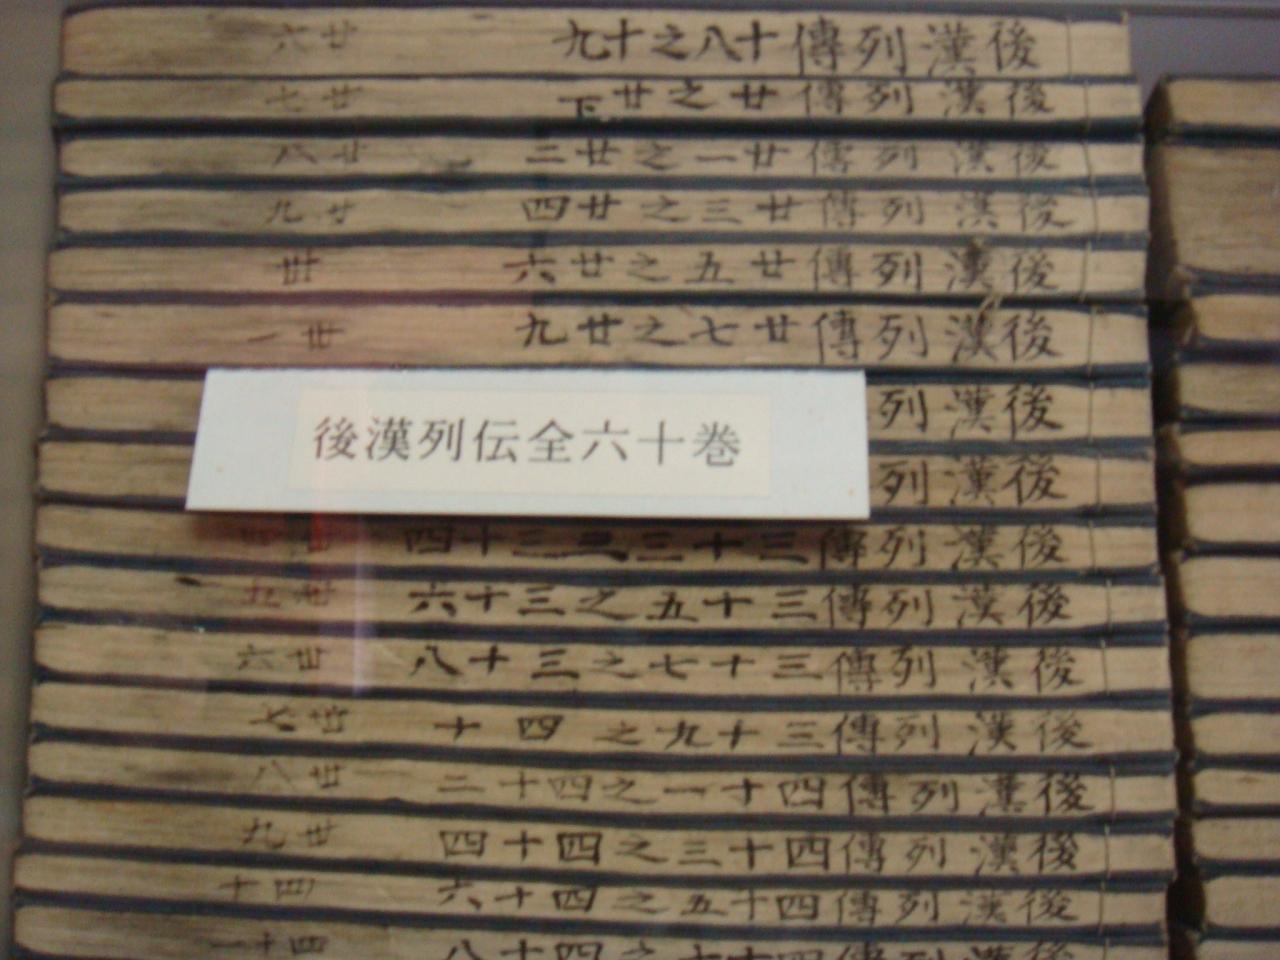 後漢列傳十八之十九 廿六
後漢列傳廿之廿下 廿七
後漢列傳廿一之廿二 廿八
後漢列傳廿三之廿四 廿九
後漢列傳廿五之廿六 卅
後漢列傳廿七之廿九 卅一
後漢列
後漢列
後漢列伝全六十巻
後漢列傳三十三之三十四 卅四
後漢列傳三十五之三十六 卅五
後漢列傳三十七之三十八 卅六
後漢列傳三十九之四十 卅七
後漢列傳四十一之四十二 卅八
後漢列傳四十三之四十四 卅九
後漢列傳四十五之四十六 四十
後漢列傳四十七之四十八 四十一